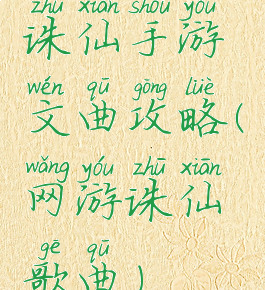 zhū xiān shǒu yóu
诛仙手游
wén qū gōng lüè
文曲攻略(
wǎng yóu zhū xiān
网游诛仙
gē qū
歌曲)